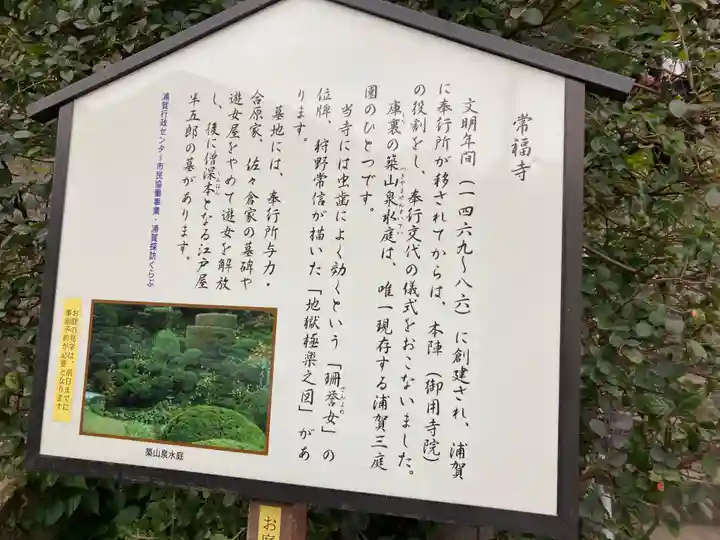 常福寺
文明年間（一四六九～八六）に創建され、浦賀
に奉行所が移されてからは、本陣（御用寺院）
の役割をし、奉行交代の儀式をおこないました。
庫裏の築山泉水庭は、唯一現存する浦賀三庭
つきやませんすいてい
園のひとつです。
当寺には虫歯によく効くという「珊誉女」の
さんよめ
位牌、狩野常信が描いた「地獄極楽之図」があ
ります。
墓地には、奉行所与力・
合原家、佐々倉家の墓碑や
遊女屋をやめて遊女を解放
し、後に僧深本となる江戸屋
半五郎の墓があります。
浦賀行政センター市民協働事業・浦賀探訪くらぶ
お庭の見学は、前日までに
事前予約が必要となります
築山泉水庭
お庭